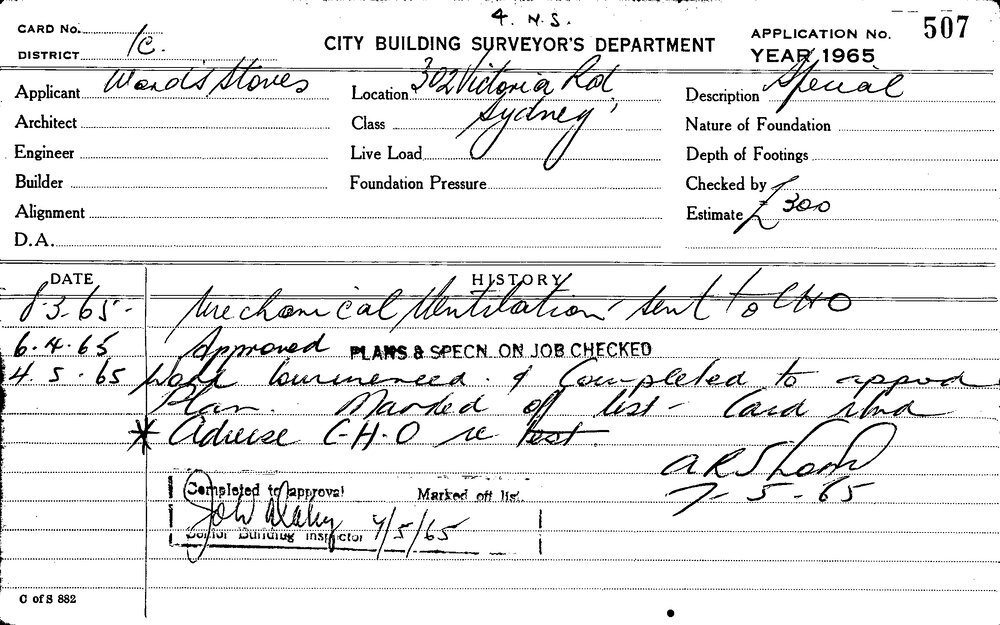 4. N.S.
CARD No. 507
CITY BUILDING SURVEYOR'S DEPARTMENT
APPLICATION No.
DISTRICT 1c.
YEAR 1965
Applicant Woods Stores
Location 302 Victoria Rd,
Description Special
Architect
Class Sydney
Nature of Foundation
Engineer
Live Load
Depth of Footings
Builder
Foundation Pressure
Checked by
Alignment
Estimate £300
D.A.
DATE HISTORY
8.3.65 - Mechanical Ventilation - sent to CHO
6.4.65 Approved PLANS & SPECN. ON JOB CHECKED
4.5.65 Work commenced & Completed to appvd
Plan. Marked off list - Card
* Advise C.H.O re test.
7-5-65
Completed to approval Marked off list.
7/5/65
Senior Building Inspector
C of S 882